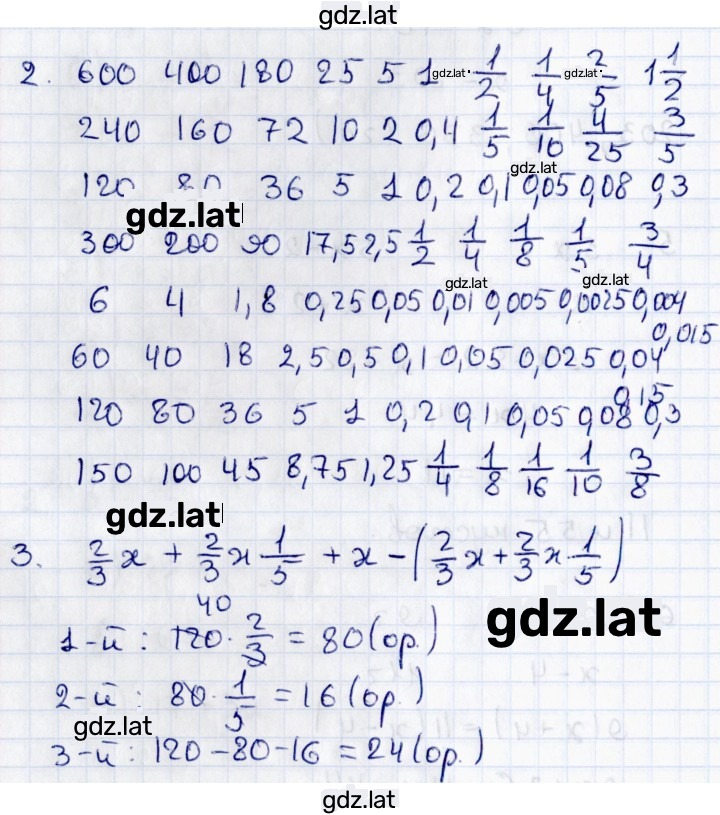 gdz.lat
2. 600 400 180 25 5 1 gdz.lat 1/2 1/4 gdz.lat 2/5 1 1/2
240 160 72 10 2 0,4 1/5 1/10 4/25 3/5
gdz.lat
120 80 36 5 1 0,2 0,1 0,05 0,08 0,3
gdz.lat
300 200 90 17,5 2,5 1/2 1/4 1/8 1/5 3/4
gdz.lat gdz.lat
6 4 1,8 0,25 0,05 0,01 0,005 0,0025 0,004
0,015
60 40 18 2,5 0,5 0,1 0,05 0,025 0,04
0,15
120 80 36 5 1 0,2 0,1 0,05 0,08 0,3
150 100 45 8,75 1,25 1/4 1/8 1/16 1/10 3/8
gdz.lat
3. 2/3 x + 2/3 x · 1/5 + x − (2/3 x + 2/3 x · 1/5)
40
1-й : 120 · 2/3 = 80 (ор.)
gdz.lat
2-й : 80 · 1/5 = 16 (ор.)
gdz.lat
3-й : 120 − 80 − 16 = 24 (ор.)
gdz.lat